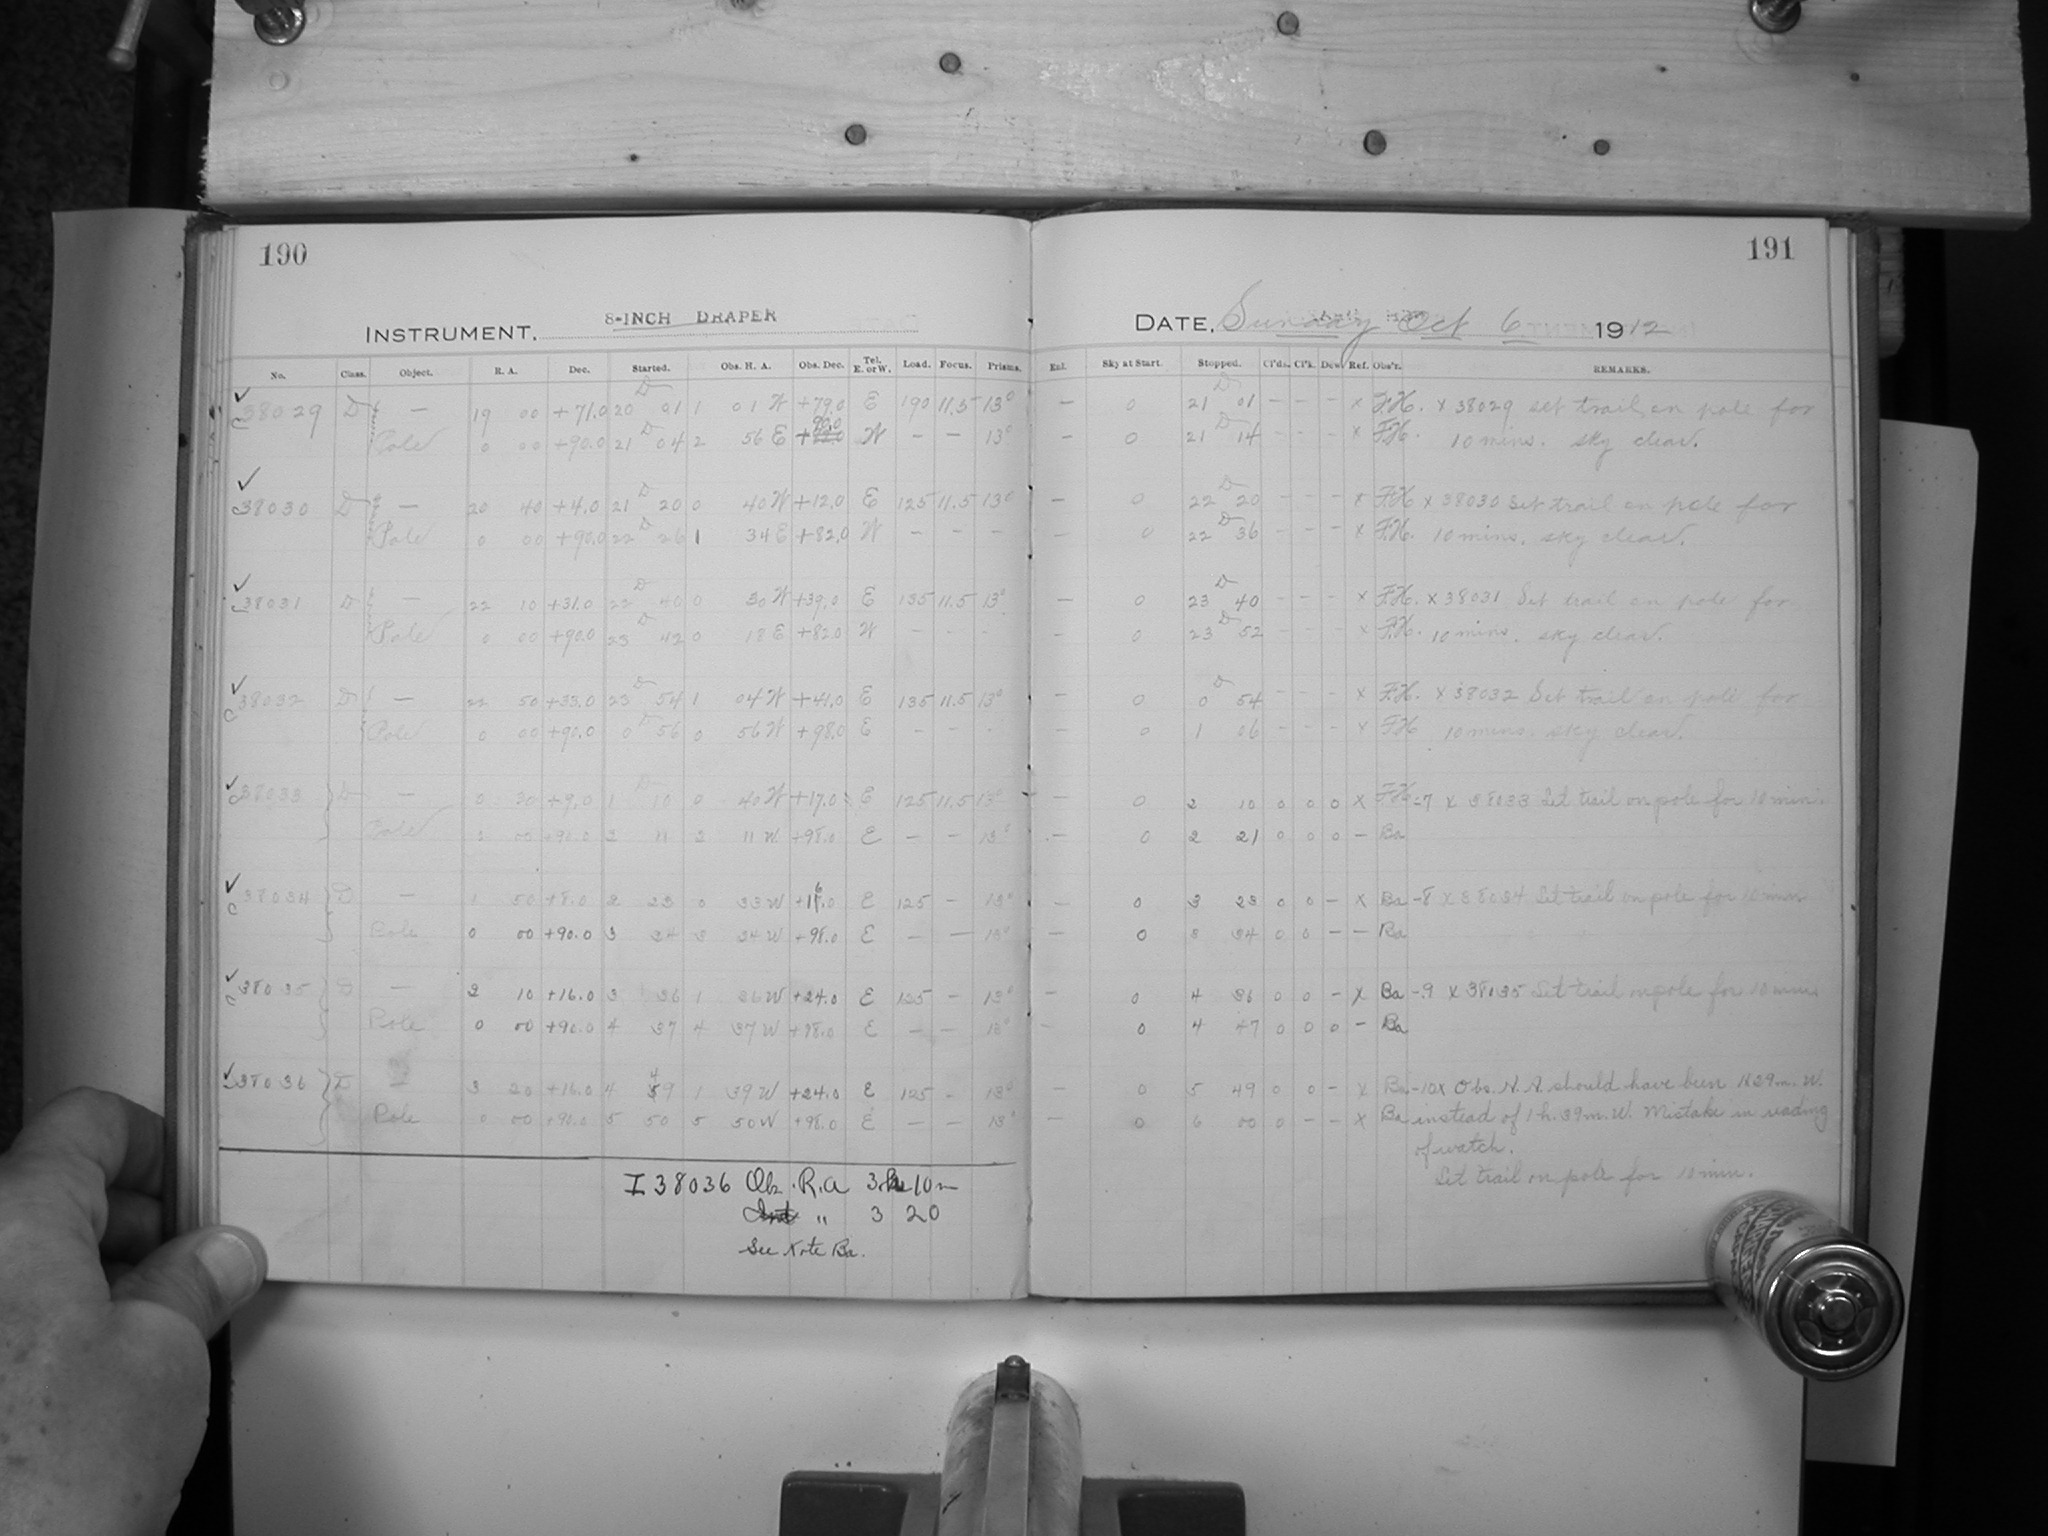 190
INSTRUMENT, 8-INCH DRAPER
No. Class. Object. R. A. Dec. Started. Obs. H. A. Obs. Dec. Tel. E. or W. Load. Focus. Prisms.
38029 D — 19 00 +71.0 20 D 01 1 01 W +79.0 E 190 11.5 13°
Pole 0 00 +90.0 21 D 04 2 56 E W — — 13°
38030 D — 20 40 +4.0 21 D 20 0 40 W +12.0 E 125 11.5 13°
Pole 0 00 +90.0 22 D 26 1 34 E +82.0 W — — —
38031 D — 22 10 +31.0 22 D 40 0 30 W +39.0 E 135 11.5 13°
Pole 0 00 +90.0 23 D 42 0 18 E +82.0 W - - -
38032 D — 22 50 +33.0 23 D 54 1 04 W +41.0 E 135 11.5 13°
Pole 0 00 +90.0 0 D 56 0 56 W +98.0 E - - -
38033 D — 0 30 +9.0 1 D 10 0 40 W +17.0 E 125 11.5 13°
Pole 00 +90.0 2 11 2 11 W +98.0 E — — 13°
38034 D — 1 50 +8.0 2 23 0 33 W E 125 - 13°
Pole 0 00 +90.0 3 24 3 24 W +98.0 E — — 13°
38035 D — 2 10 +16.0 3 36 1 26 W +24.0 E 125 - 13°
Pole 0 00 +90.0 4 37 4 37 W +98.0 E — — 13°
38036 D — 3 20 +16.0 4 49 1 39 W +24.0 E 125 - 13°
Pole 0 00 +90.0 5 50 5 50 W +98.0 E — — 13°
I 38036 Obs. R.A 3h 10m
" 3 20
See Note Ba.
191
DATE, Sunday Oct 6 1912
Exl. Sky at Start. Stopped. Cl'ds. Cl'k. Dew Ref. Obs'r. REMARKS.
— 0 21 D 01 - - - x F.H. x 38029 set trail on pole for
— 0 21 D 14 - - - x F.H. 10 mins. sky clear.
— 0 22 D 20 - - - x F.H x 38030 Set trail on pole for
— 0 22 D 36 - - - x F.H. 10 mins. sky clear.
— 0 23 D 40 - - - x F.H. x 38031 Set trail on pole for
— 0 23 D 52 - - - x F.H. 10 mins. sky clear.
— 0 0 D 54 - - - x F.H. x 38032 Set trail on pole for
— 0 1 06 - - - x F.H 10 mins. sky clear.
— 0 2 10 0 0 0 x F.H -7 x 38033 Set trail on pole for 10 min.
— 0 2 21 0 0 0 - Ba
— 0 3 23 0 0 - x Ba -8 x 38034 Set trail on pole for 10 min
— 0 3 34 0 0 - - Ba
— 0 4 36 0 0 - x Ba -9 x 38035 Set trail on pole for 10 min
— 0 4 47 0 0 0 - Ba
— 0 5 49 0 0 - x Ba -10 x Obs. H. A. should have been 1h 29m. W.
— 0 6 00 0 - - x Ba instead of 1 h. 39 m. W. Mistake in reading
of watch.
Set trail on pole for 10 min.